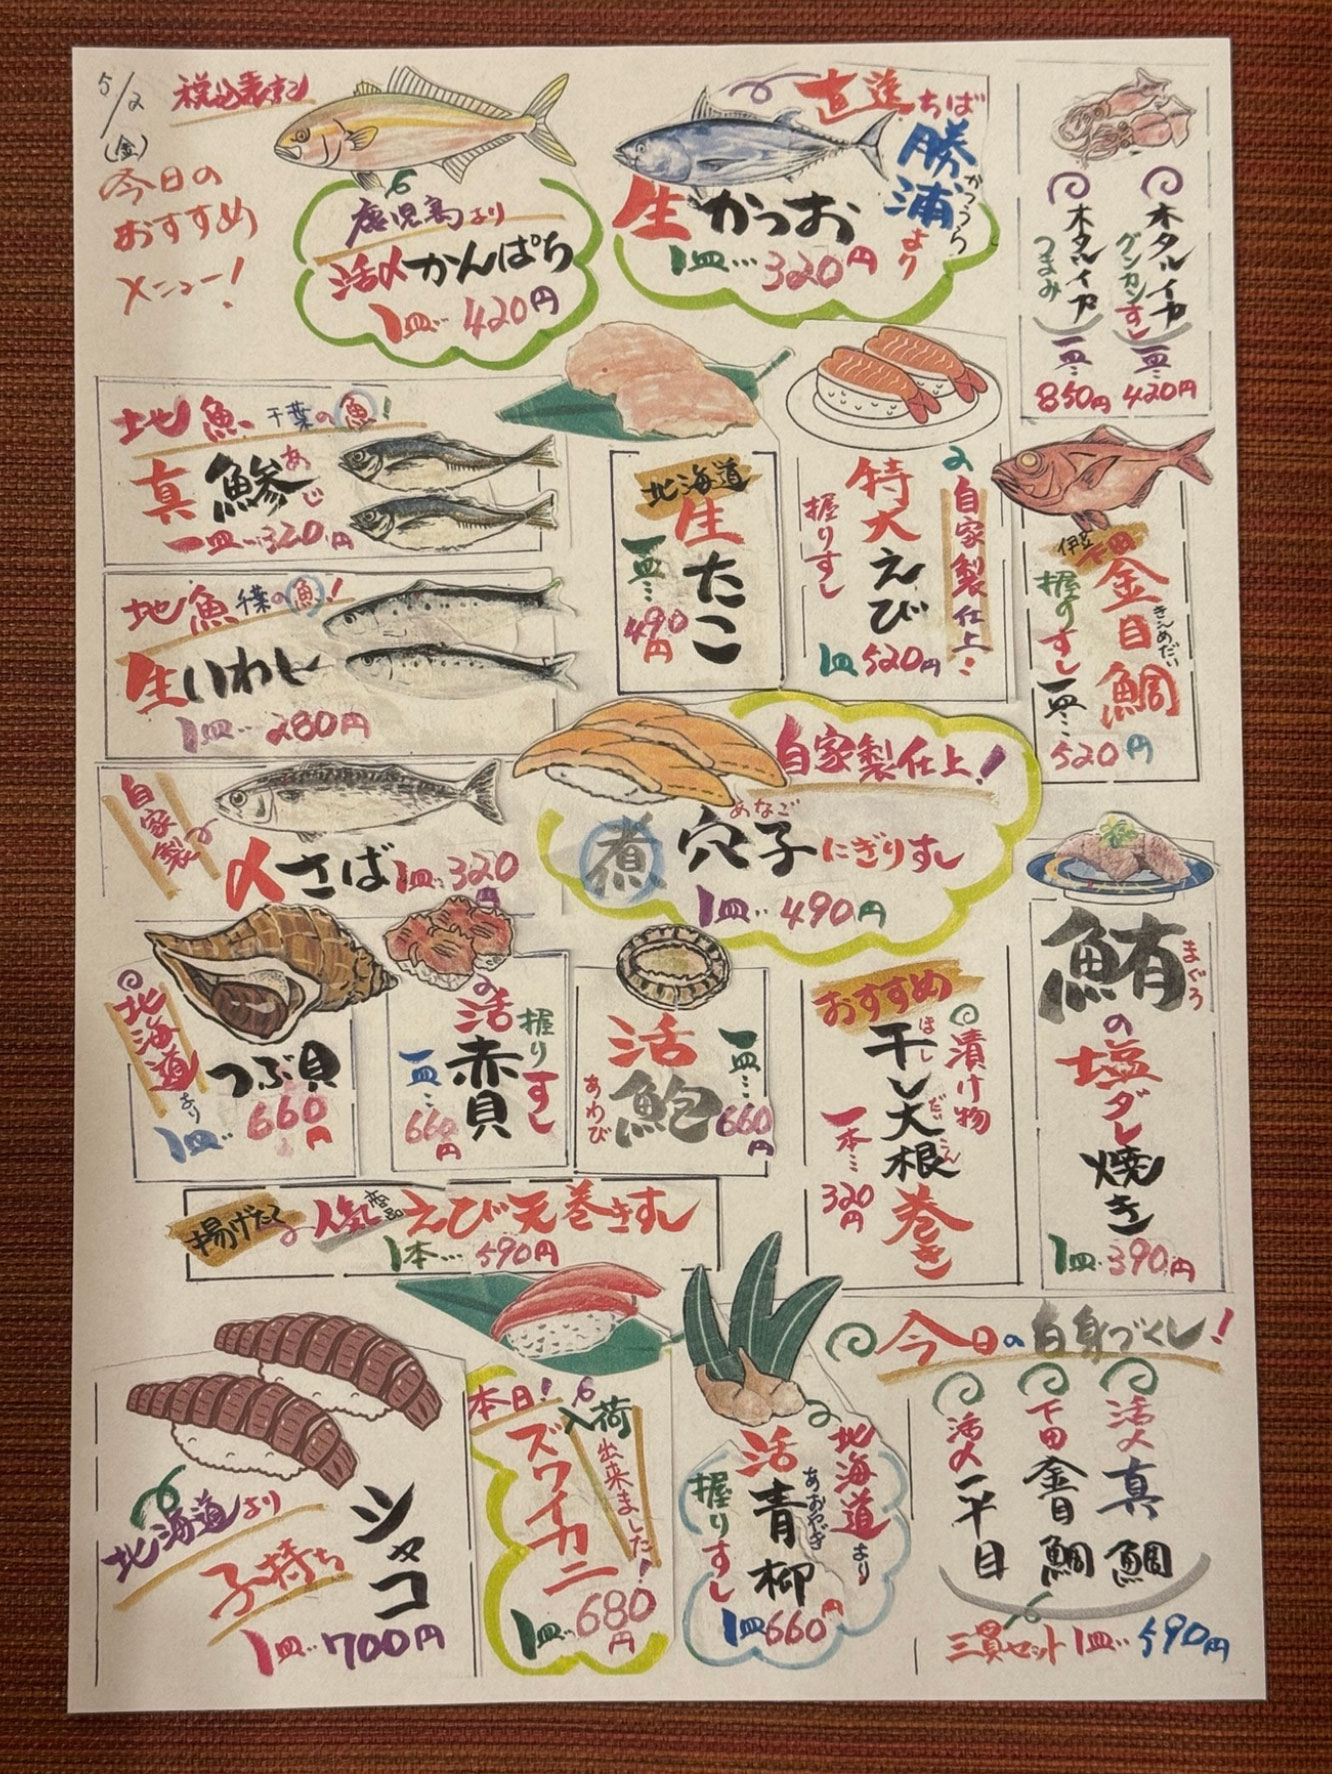 5/2
(金)
税込表示
今日の
おすすめ
メニュー!
鹿児島より
活〆かんぱち
1皿…420円
直送ちば
勝浦より
かつうら
生かつお
1皿…320円
ホタルイカ
グンカンすし
一皿…
420円
ホタルイカ
つまみ
一皿…
850円
地魚 千葉の魚!
真鯵
あじ
一皿…320円
地魚 千葉の魚!
生いわし
1皿…280円
北海道
生たこ
一皿…
490円
自家製仕上!
特大えび
握りすし
1皿520円
伊豆下田
金目鯛
きんめだい
握りすし一皿…
520円
自家製
〆さば1皿…320円
自家製仕上!
煮穴子にぎりすし
あなご
1皿…490円
鮪の塩ダレ焼き
まぐろ
1皿…390円
北海道より
つぶ貝
1皿…660円
活赤貝
握りすし
一皿…
660円
活鮑
あわび
一皿…
660円
おすすめ
漬け物
干し大根巻き
ほし だいこん
一本…
320円
揚げたて 人気商品 えび天巻きすし
1本…590円
北海道より
子持ち
シャコ
1皿…700円
本日!入荷
出来ました!
ズワイカニ
1皿…680円
北海道より
活青柳
あおやぎ
握りすし
1皿660円
今日の白身づくし!
活〆真鯛
下田金目鯛
活〆平目
三貫セット1皿…590円